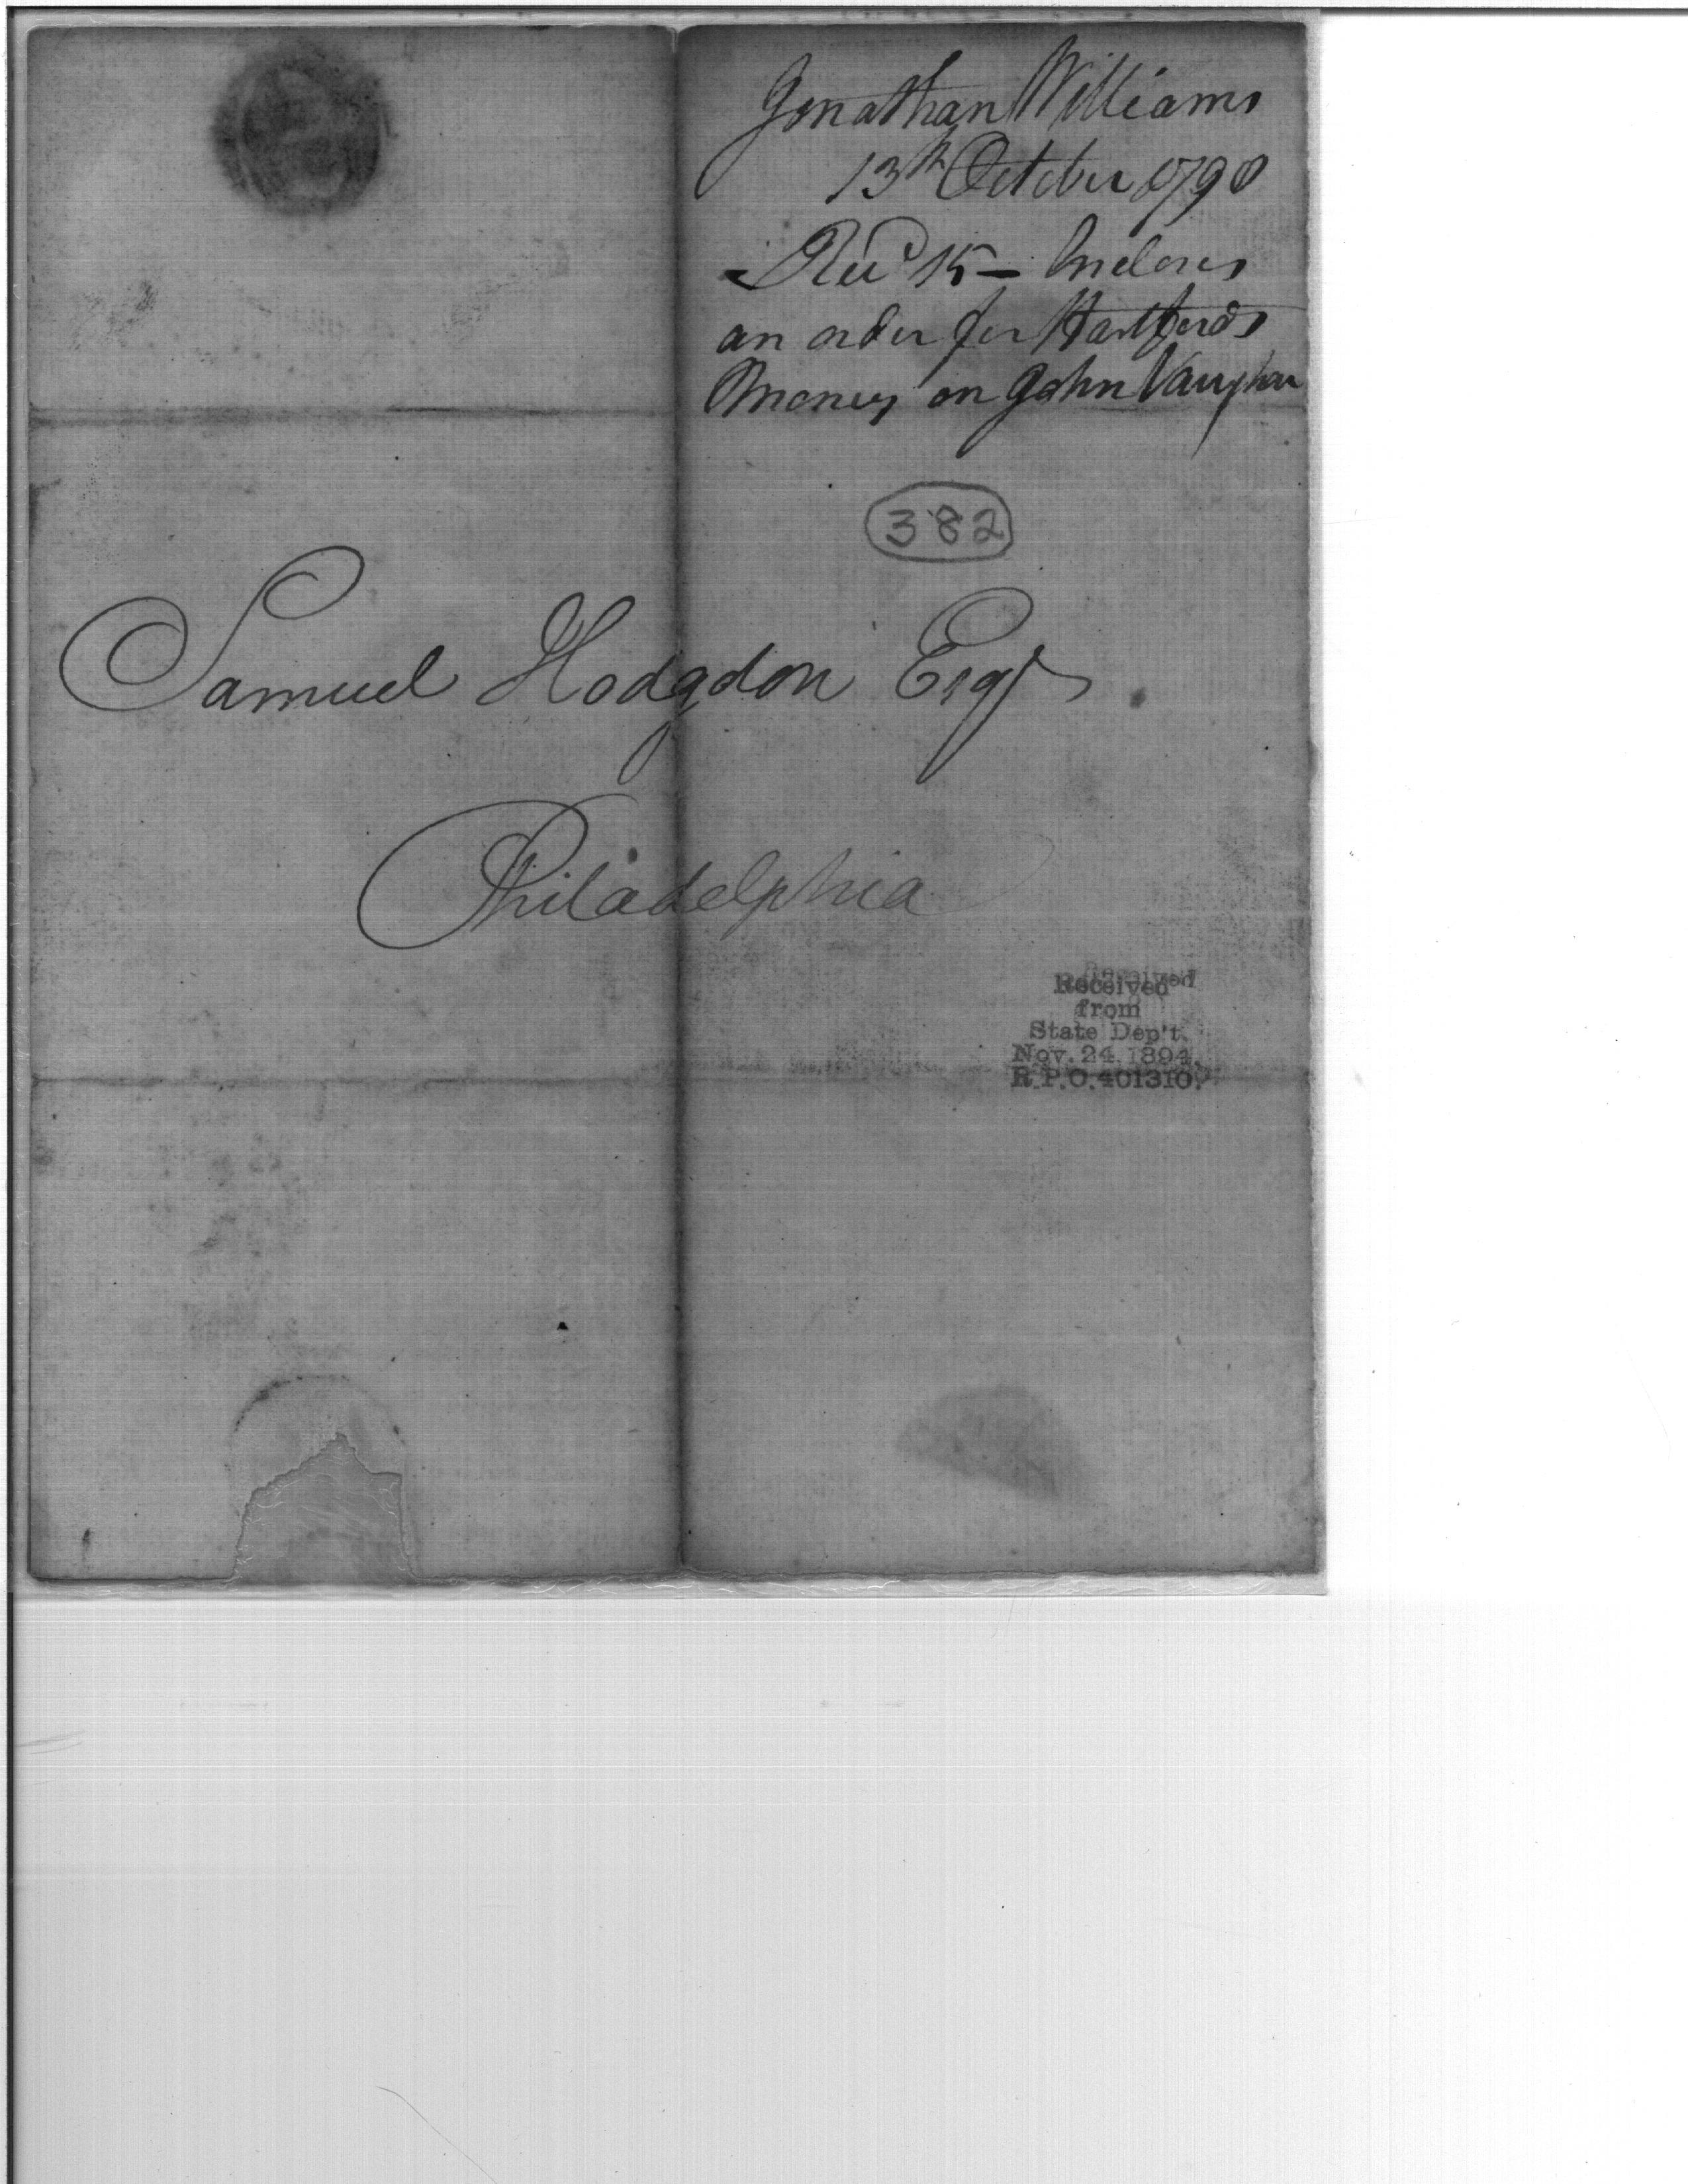 Jonathan Williams
13th October 1790
Recd 15 – Incloses
an order for Hartfords
Money on John Vaughan
382
Samuel Hodgdon Esqr
Philadelphia
Received
Received
from
State Dep't.
Nov. 24, 1894.
R.P.O. 401310.